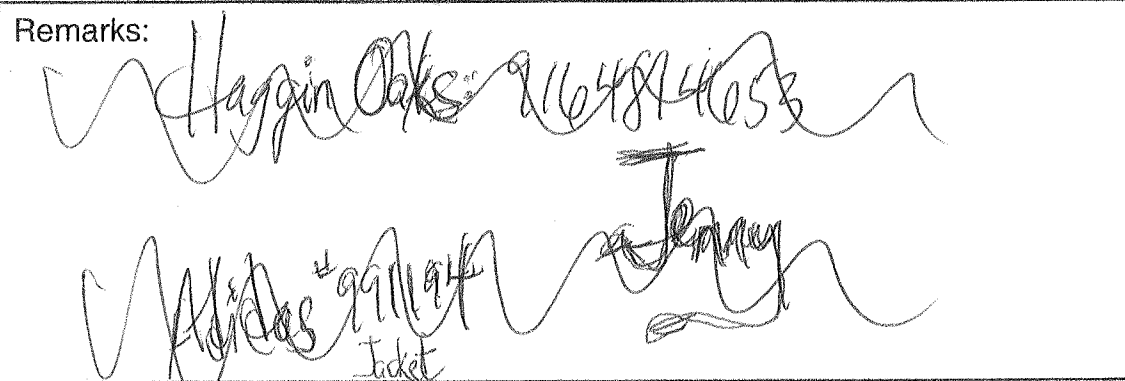 Remarks:
Haggin Oaks: 9164814653
Jenny
Adidas #991194
Jacket